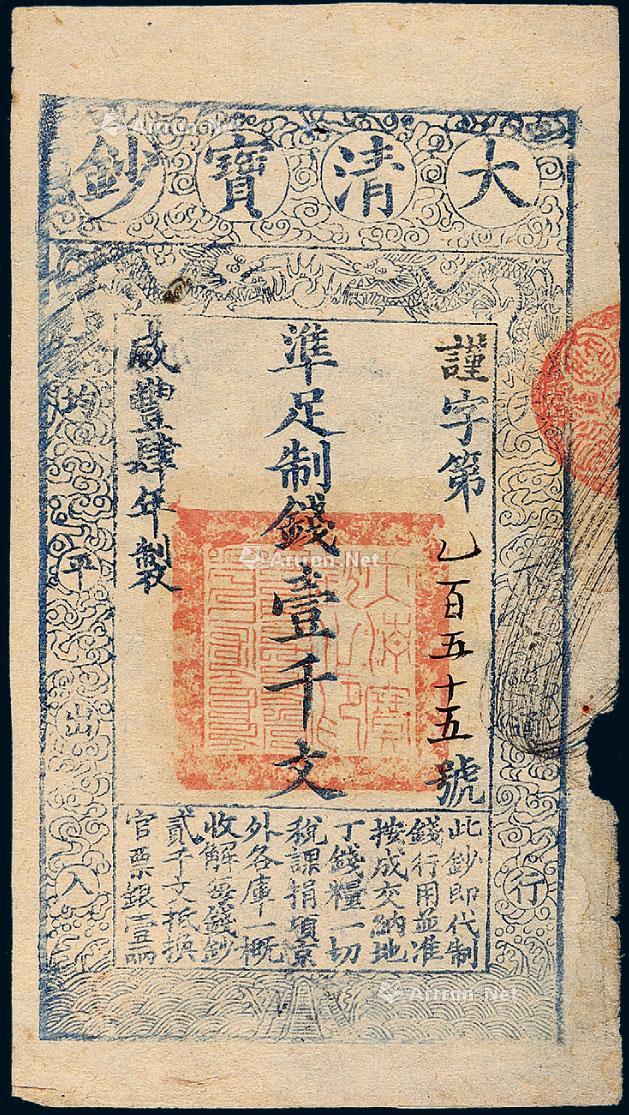 大清寶鈔
謹字第乙百五十五號
準足制錢壹千文
咸豐肆年製
此鈔即代制
錢行用並准
按成交納地
丁錢糧一切
稅課捐項京
外各庫一概
收解每錢鈔
貳千文抵換
官票銀壹兩
天下通行
均平出入
大清寶鈔之印
Artron.Net
Artron.Net
Artron.Net